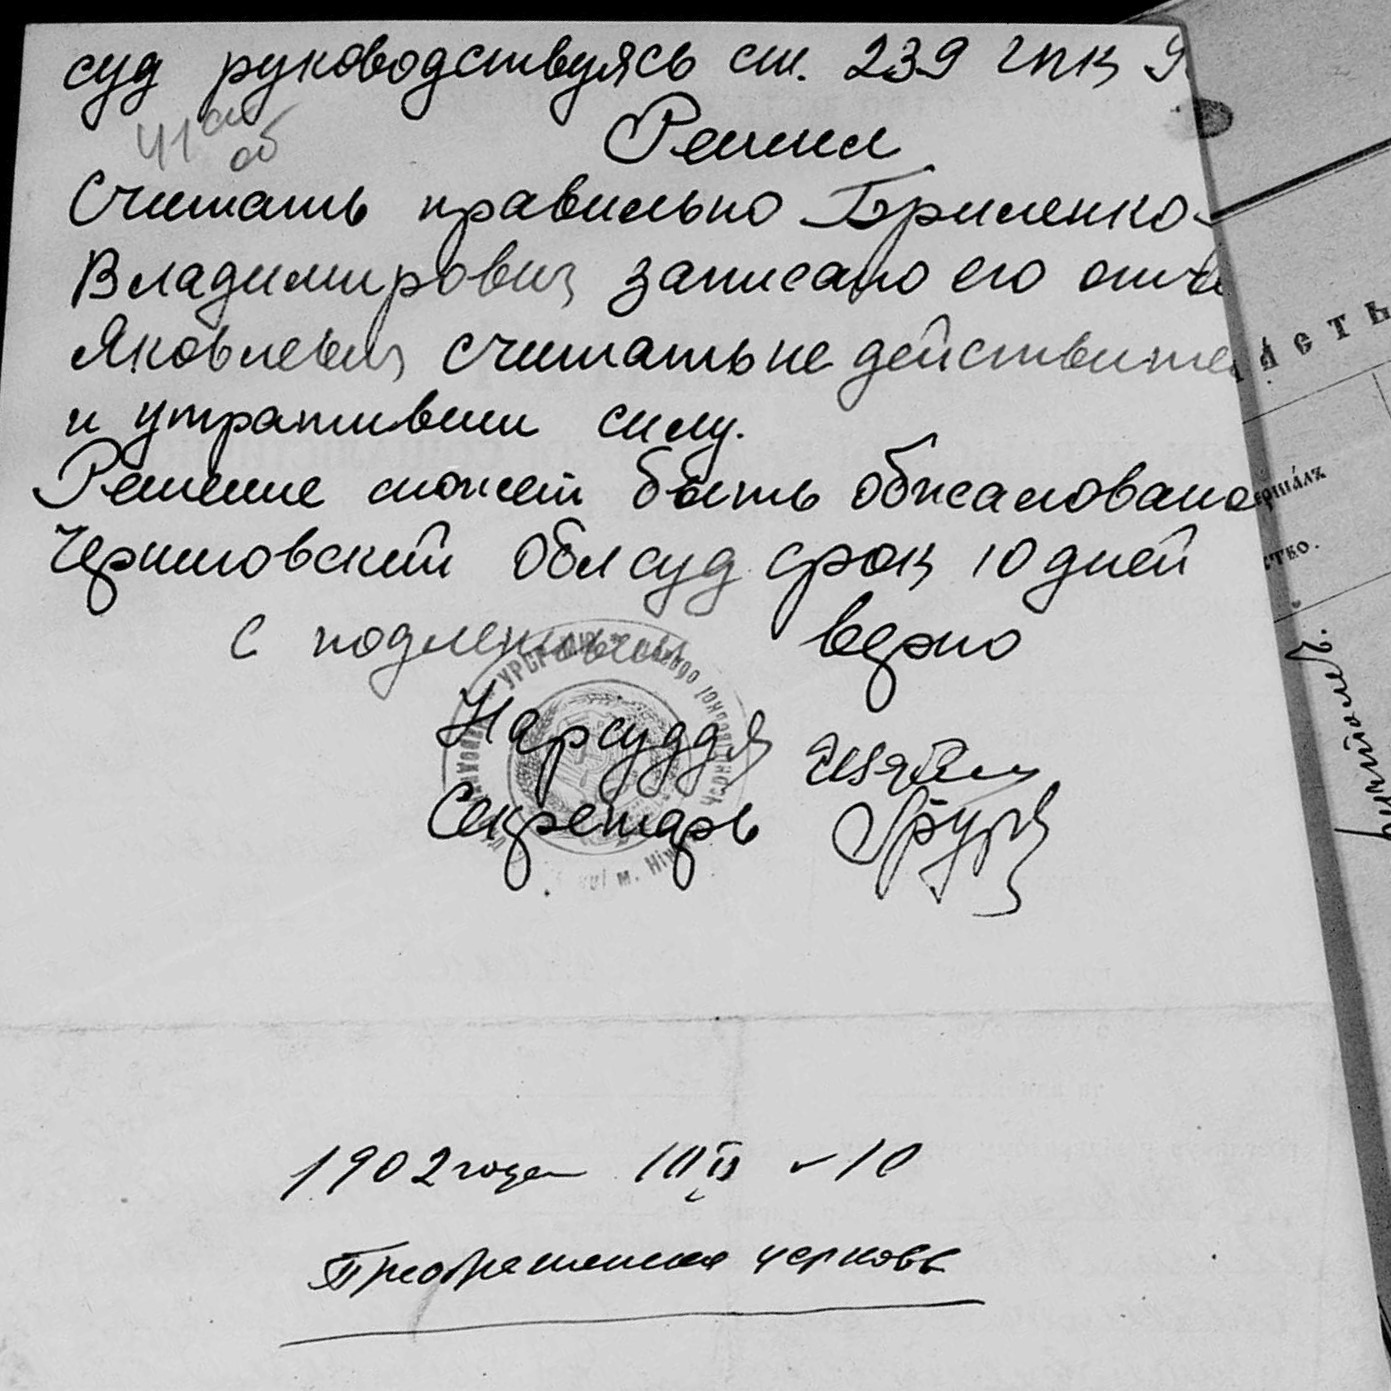 суд руководствуясь ст. 239 гпк У
41 об
Решил
Считать правильно Бриленко-
Владимирович записано его отче
Яковлевич считать не действите
и утративши силу.
Решение может быть обжаловано
Черниговский Облсуд срок 10 дней
С подлинным верно
Нарсуддя
Секретарь
УРСР
м. Ніж
1902 года 10
Преображенская церковь
асть
ство.